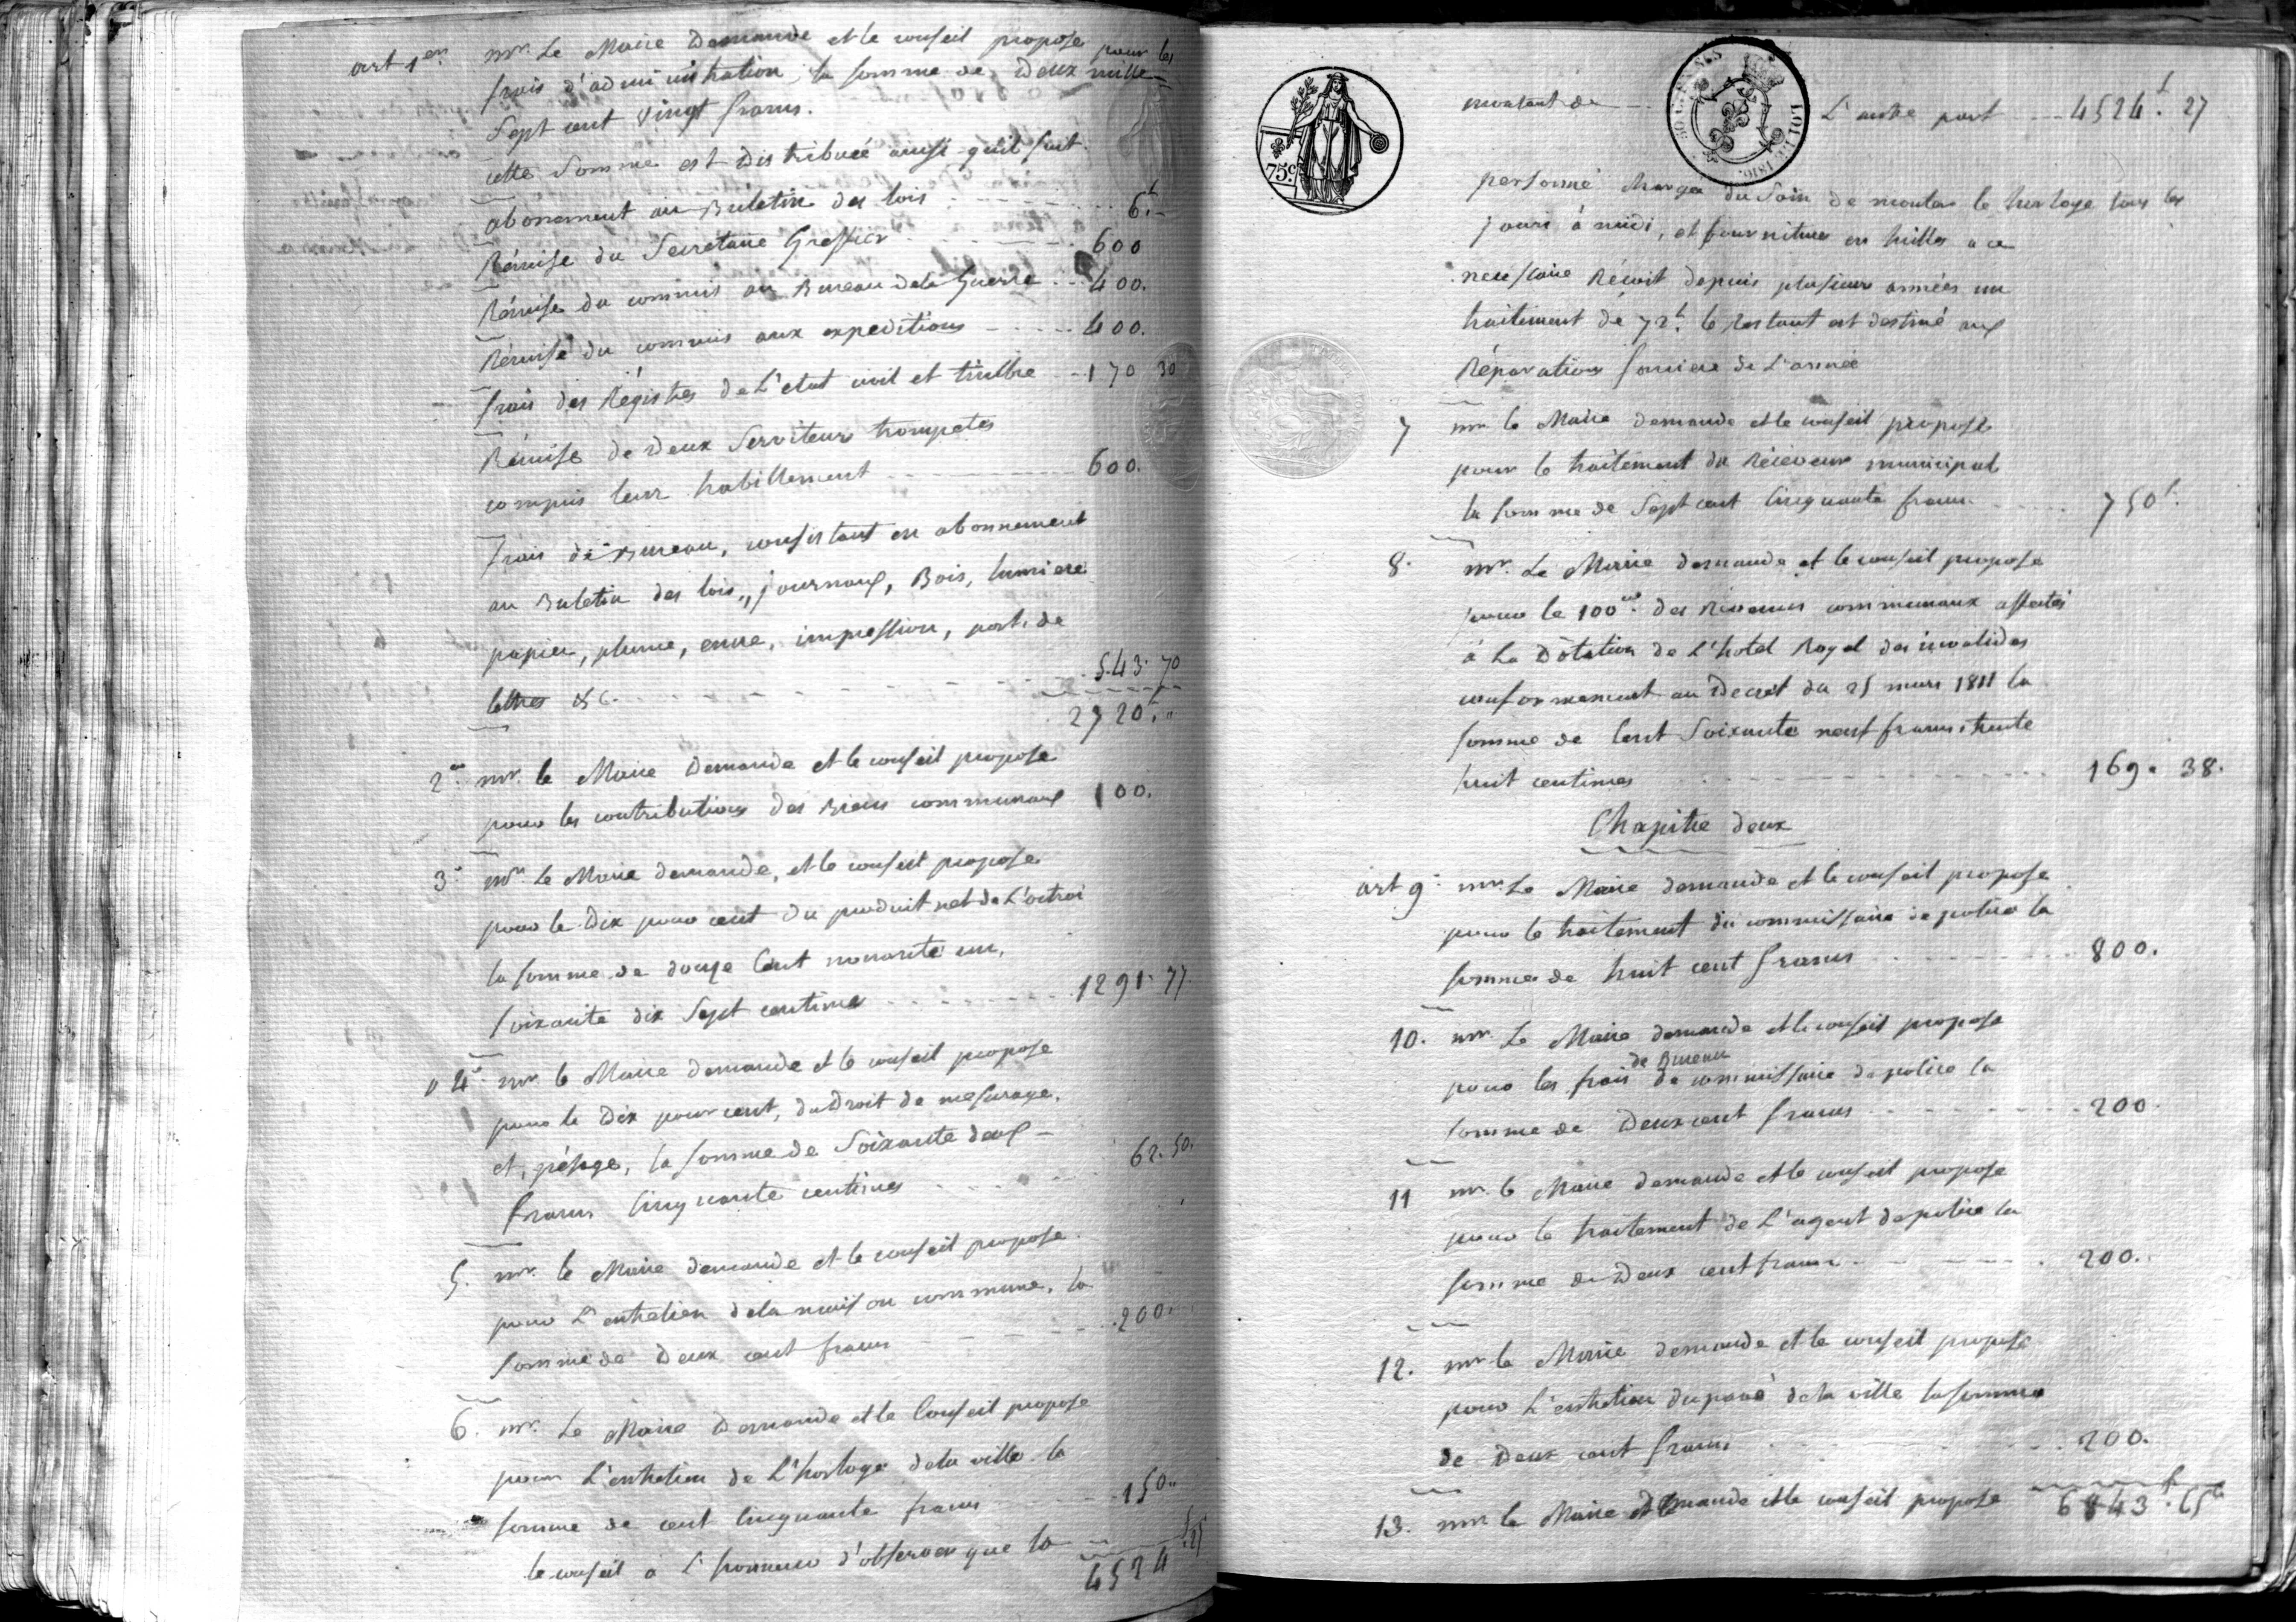 art 1er mr. Le Maire Demande et le conseil propose pour les
frais d'administration, la somme de Deux mille
Sept cent vingt francs.
cette Somme est Distribuée ainsi qu'il suit
abonement au Buletin des lois 6f.
Rémise du Secretaire Greffier 600
Rémise du commis au Bureau de la Guerre 400.
Rémise du commis aux expeditions 400.
frais des Régistres de L'etat civil et timbre 170 30
Rémise de Deux Serviteurs trompetes
compris leur habillement 600.
frais de Bureau, consistant en abonnement
au Buletin des lois, journaux, Bois, lumiere
papier, plume, encre, impression, port de
lettres &c. 543. 70
2720f. "
2e. mr. le Maire Demande et le conseil propose
pour les contributions des Biens communaux 100.
3e mr. Le Maire demande, et le conseil propose
pour le Dix pour cent du produit net de L'octroi
la somme de douze Cent nonante un,
soixante dix Sept centimes 1291. 77
4e. mr. le Maire demande et le conseil propose
pour le Dix pour cent, du Droit de mesurage,
et, pésage, la somme de Soixante deux
francs Cinquante centimes 62. 50.
5. mr. le Maire demande et le conseil propose
pour L'entretien de la maison commune, la
somme de Deux cent francs 200.
6. mr. Le Maire Demande et le Conseil propose
pour L'entretien de L'horloge de la ville la
somme de cent Cinquante francs 150.
le conseil a L'honneur d'observer que la 4524f. 27
75c.
montant de L'autre part 4524f. 27
LOI DE 1816.
personne chargée du Soin de monter le horloge tous les
jours à midi, et fourniture en huilles a ce
necessaire Récoit depuis plusieurs années un
traitement de 72f. le Restant est destiné aux
Réparations fonciere de L'année
7 mr le Maire demande et le conseil propose
pour le traitement du Réceveur municipal
la somme de Sept cent Cinquante francs 750f.
8. mr. Le Maire demande et le conseil propose
pour le 100me. des Revenus communaux affectés
à La Dôtation de L'hotel Royal des invalides
conformement au Decret du 25 mars 1811 la
somme de Cent Soixante neuf francs, trente
huit centimes 169. 38.
Chapitre deux
art 9e mr. Le Maire demande et le conseil propose
pour le traitement du commissaire de police la
somme de huit cent francs 800.
10. mr. Le Maire demande et le conseil propose
de Bureau
pour les frais de commissaire de police la
somme de Deux cent francs 200.
11 mr. le Maire demande et le conseil propose
pour le traitement de L'agent de police la
somme de Deux cent francs 200.
12. mr le Maire demande et le conseil propose
pour L'entretien du pavé de la ville la somme
de Deux cent francs 200.
13. mr le Maire demande et le conseil propose 6843f. 65c